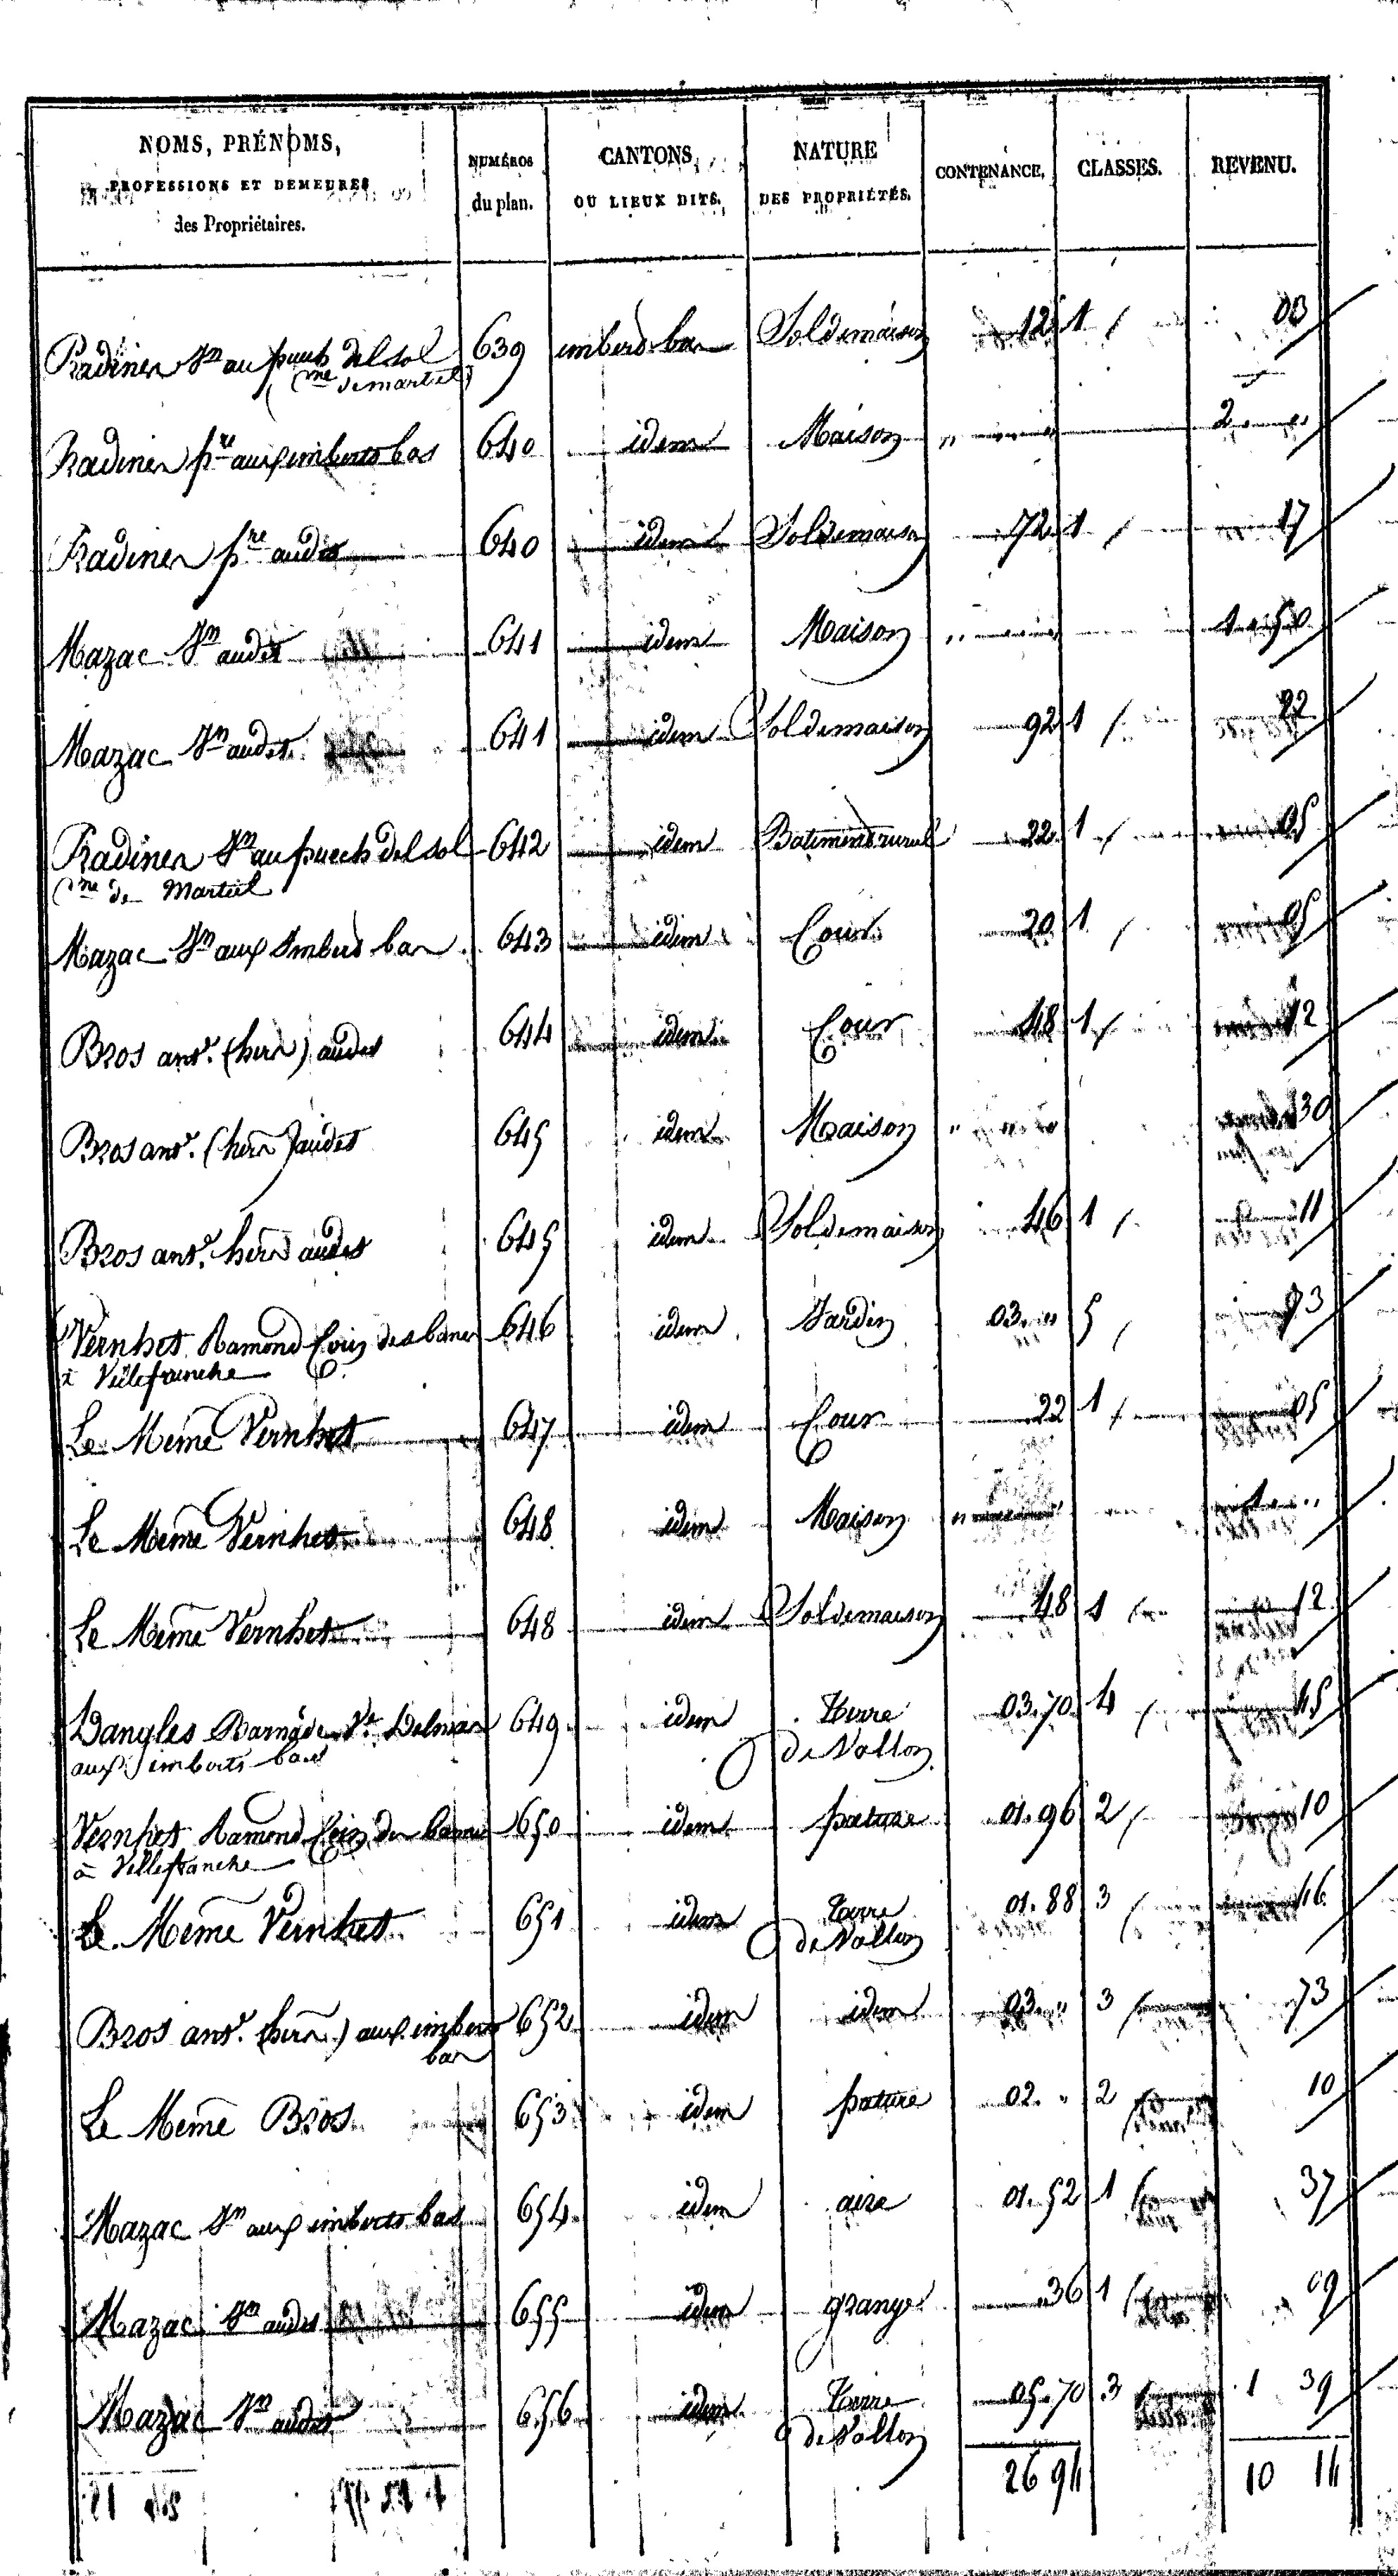 NOMS, PRÉNOMS, PROFESSIONS ET DEMEURES des Propriétaires. NUMÉROS du plan. CANTONS, OU LIEUX DITS. NATURE DES PROPRIÉTÉS. CONTENANCE. CLASSES. REVENU.
au puech del sol 639 Sol de maison 12 1 03
(Cne de martiel)
pre aux imberts bas 640 idem Maison " 2
pre audit 640 idem Sol de maison 72 1 17
Mazac audit 641 idem Maison " 1 50
Mazac audit 641 idem Sol de maison 92 1 22
au puech del sol 642 idem Batiment rural 22 1 05
Cne de Martiel
Mazac aux Imberts bas 643 idem Cour 20 1 05
Bros ant. (hers) audit 644 idem Cour 48 1 12
Bros ant. (hers) audit 645 idem Maison " 30
Bros ant. hers audit 645 idem Sol de maison 46 1 11
Vernhet Ramond 646 idem Jardin 03 " 5 73
à Villefranche
Le Meme Vernhet 647 idem Cour 22 1 05
Le Meme Vernhet 648 idem Maison " 1
Le Meme Vernhet 648 idem Sol de maison 48 1 12
Dangles Ve Delmas 649 idem Terre 03.70 4 45
aux imberts bas de Vallon
Vernhet Ramond 650 idem pature 01.96 2 10
à Villefranche
Le Meme Vernhet 651 idem Terre 01.88 3 46
de Vallon
Bros ant. (hers) aux imberts 652 idem idem 03 " 3 73
bas
Le Meme Bros 653 idem pature 02. " 2 10
Mazac aux imberts bas 654 idem aire 01.52 1 37
Mazac audit 655 idem grange 36 1 09
Mazac audit 656 idem Terre 05.70 3 1 39
de Vallon
26 94 10 14